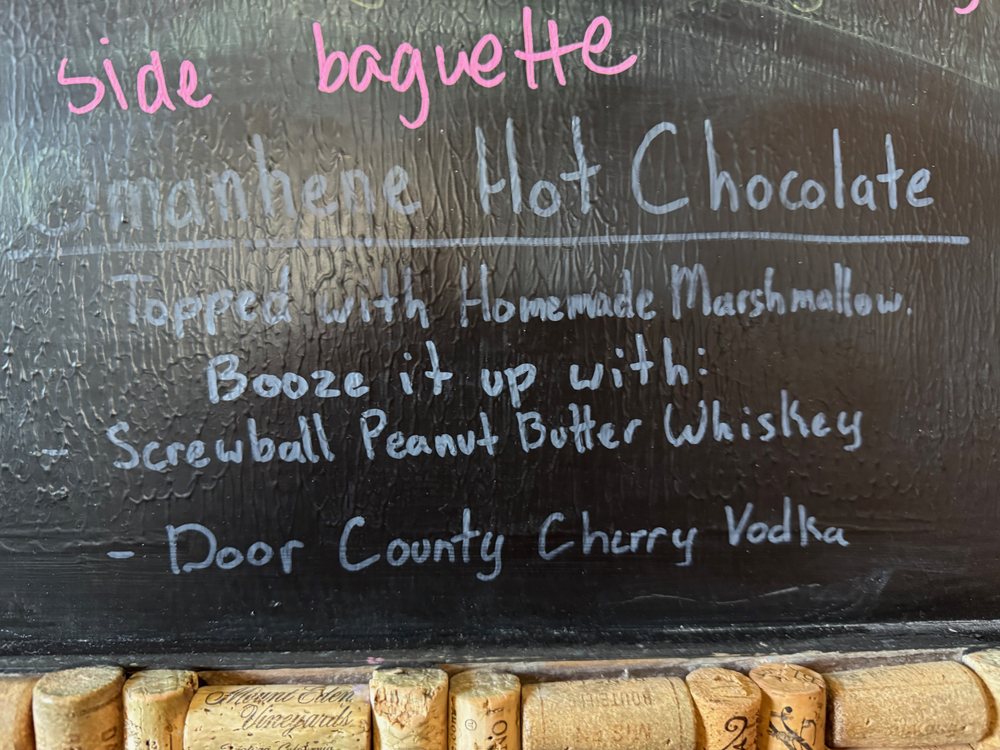 side baguette
Omanhene Hot Chocolate
Topped with Homemade Marshmallow.
Booze it up with:
- Screwball Peanut Butter Whiskey
- Door County Cherry Vodka
Mount Eden
Vineyards